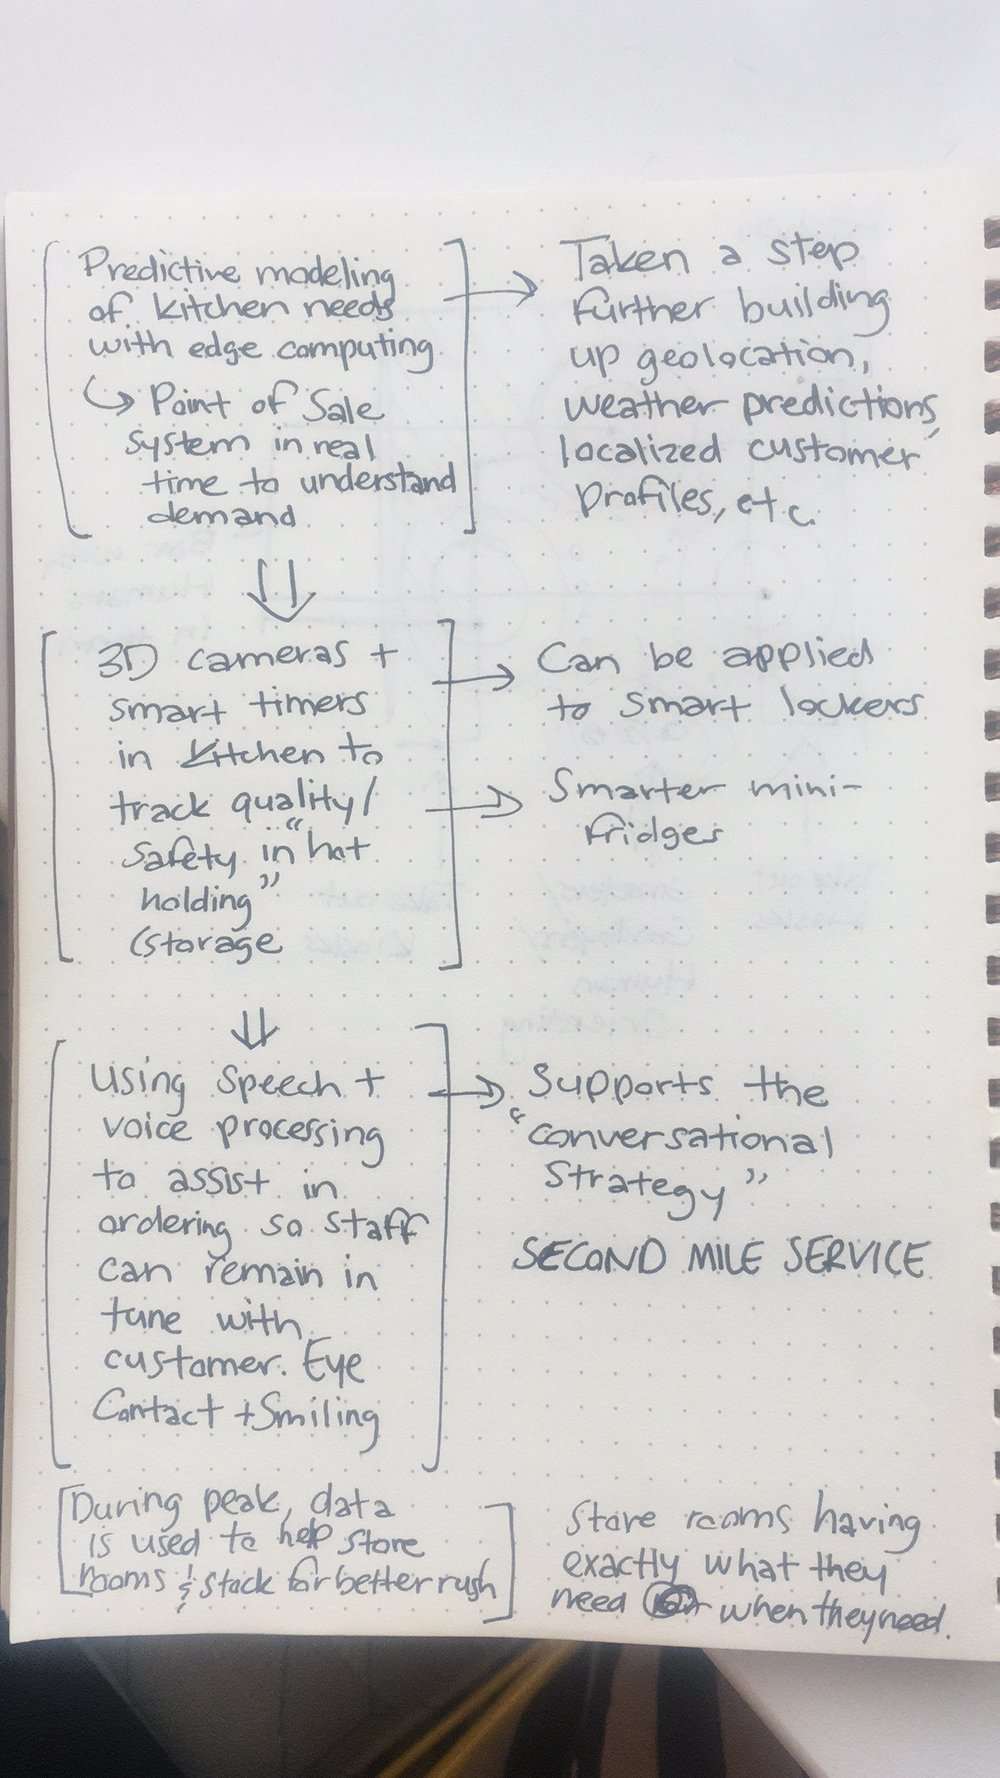 Predictive modeling
of kitchen needs
with edge computing
Point of Sale
system in real
time to understand
demand
Taken a step
further building
up geolocation,
weather predictions,
localized customer
profiles, etc.
3D cameras +
smart timers
in kitchen to
track quality/
safety in "hot
holding"
(storage
Can be applied
to smart lockers
Smarter mini-
fridges
Using speech +
voice processing
to assist in
ordering so staff
can remain in
tune with
customer. Eye
Contact + Smiling
Supports the
"conversational
strategy"
SECOND MILE SERVICE
During peak, data
is used to help store
rooms & stock for better rush
Store rooms having
exactly what they
need when they need.